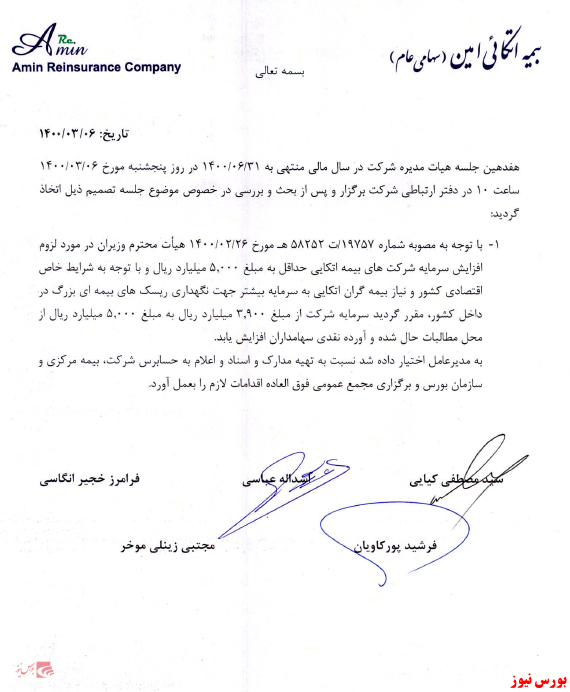 Amin Re.
Amin Reinsurance Company
بیمه اتکائی امین (سهامی عام)
بسمه تعالی
تاریخ: ۱۴۰۰/۰۳/۰۶
هفدهمین جلسه هیات مدیره شرکت در سال مالی منتهی به ۱۴۰۰/۰۶/۳۱ در روز پنجشنبه مورخ ۱۴۰۰/۰۳/۰۶
ساعت ۱۰ در دفتر ارتباطی شرکت برگزار و پس از بحث و بررسی در خصوص موضوع جلسه تصمیم ذیل اتخاذ
گردید:
۱- با توجه به مصوبه شماره ۱۹۷۵۷/ت ۵۸۲۵۲ هـ مورخ ۱۴۰۰/۰۲/۲۶ هیأت محترم وزیران در مورد لزوم
افزایش سرمایه شرکت های بیمه اتکایی حداقل به مبلغ ۵,۰۰۰ میلیارد ریال و با توجه به شرایط خاص
اقتصادی کشور و نیاز بیمه گران اتکایی به سرمایه بیشتر جهت نگهداری ریسک های بیمه ای بزرگ در
داخل کشور، مقرر گردید سرمایه شرکت از مبلغ ۳,۹۰۰ میلیارد ریال به مبلغ ۵,۰۰۰ میلیارد ریال از
محل مطالبات حال شده و آورده نقدی سهامداران افزایش یابد.
به مدیرعامل اختیار داده شد نسبت به تهیه مدارک و اسناد و اعلام به حسابرس شرکت، بیمه مرکزی و
سازمان بورس و برگزاری مجمع عمومی فوق العاده اقدامات لازم را بعمل آورد.
سید مصطفی کیایی اسداله عباسی فرامرز خجیر انگاسی
فرشید پورکاویان مجتبی زینلی موخر
بورس نیوز
بورس نیوز